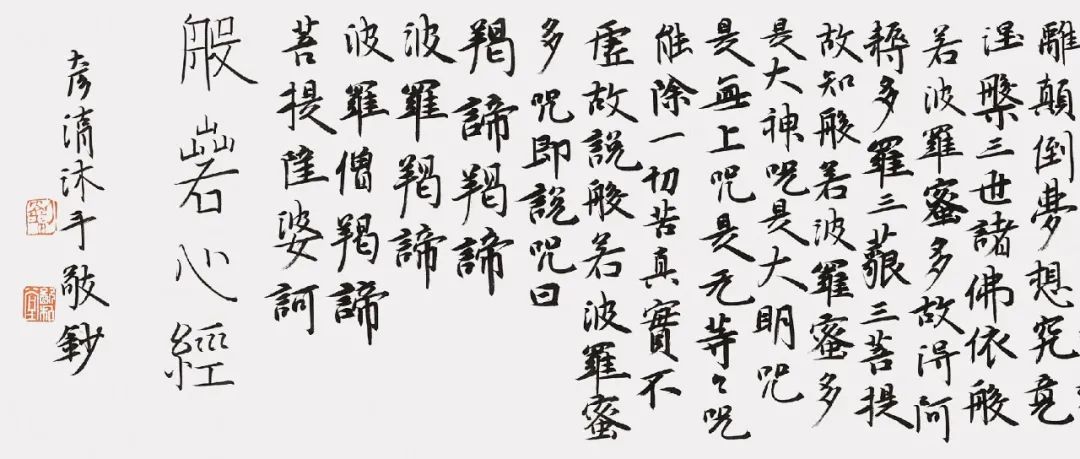 離顛倒夢想究竟
涅槃三世諸佛依般
若波羅蜜多故得阿
耨多羅三藐三菩提
故知般若波羅蜜多
是大神咒是大明咒
是無上咒是无等々咒
能除一切苦真實不
虛故說般若波羅蜜
多咒即說咒曰
羯諦羯諦
波羅羯諦
波羅僧羯諦
菩提薩婆訶
般若心經
沐手敬鈔